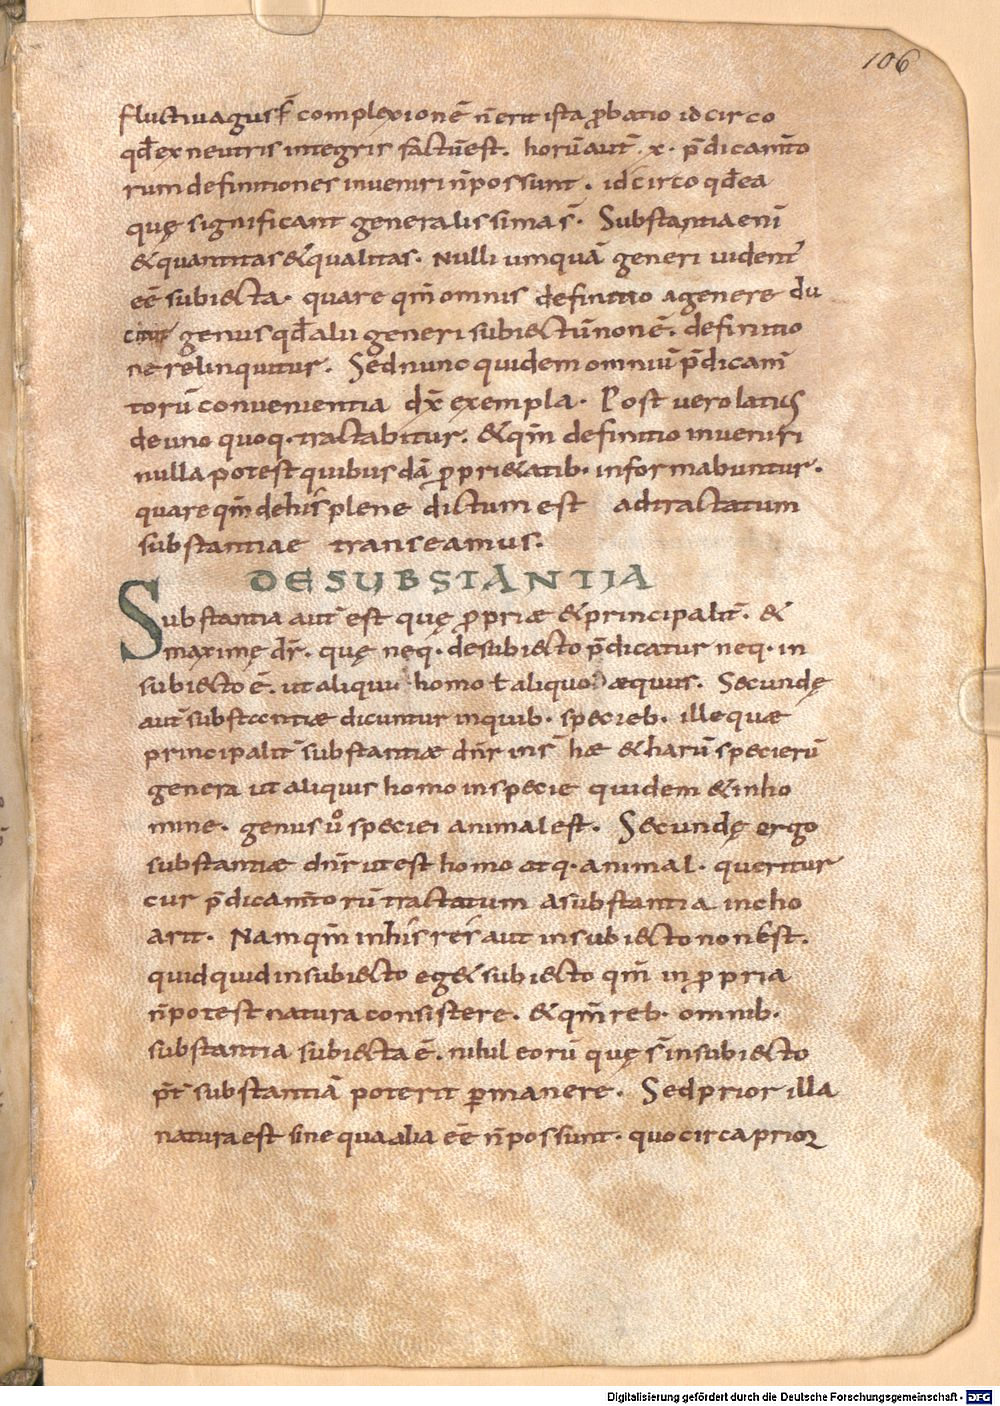 106
fluctivagusē complexionē n̄ erit ista ꝓbatio idcirco
qđ ex neutris integris factū est. horū aut̄ .x. p̄dicam̄to
rum definitiones inveniri n̄ possunt. idcirco qđ ea
quę significant generalissima s̄. Substantia eni
& quantitas & qualitas. Nulli umquā generi videnť
eē subiecta. quare qm̄ omnis definitio a genere du
citur genus qđ alii generi subiectū non ē. definitio
ne relinquitur. Sed nunc quidem omniū p̄dicam̄
torū convenientia dx̄ exempla. Post vero latius
de uno quoq. tractabitur. & qm̄ definitio inveniri
nulla potest quibusdā ꝓpri&atib. informabuntur.
quare qm̄ de his plene dictum est ad tractatum
substantiae transeamus.
DE SUBSTANTIA
Substantia aut̄ est quę ꝓpriæ & principalit̄. &
maximę dr̄. quę neq. de subiecto p̄dicatur neq. in
subiecto ē. ut aliqui homo ł aliquo æquus. Secundę
aut̄ substantiæ dicuntur in quib. specieb. ille quæ
principalit̄ substantiæ dn̄r ins̄ hæ & harū specierū
genera ut aliquis homo in specie quidem & in ho
mine. genus v̊ speciei animal est. Secundę ergo
substantiæ dn̄r ut est homo atq. animal. queritur
cur p̄dicam̄torū tractatum a substantia incho
arit. Nam qm̄ in his res aut in subiecto non est.
quidquid in subiecto eg& subiecto qm̄ in ꝓpria
n̄ potest natura consistere. & qm̄ reb. omnib.
substantia subiecta ē. nihil eorū quę s̄ in subiecto
p̄t substantiā poterit ꝑmanere. Sed prior illa
natura est sine qua alia eē n̄ possunt. quocirca prior
Digitalisierung gefördert durch die Deutsche Forschungsgemeinschaft - DFG